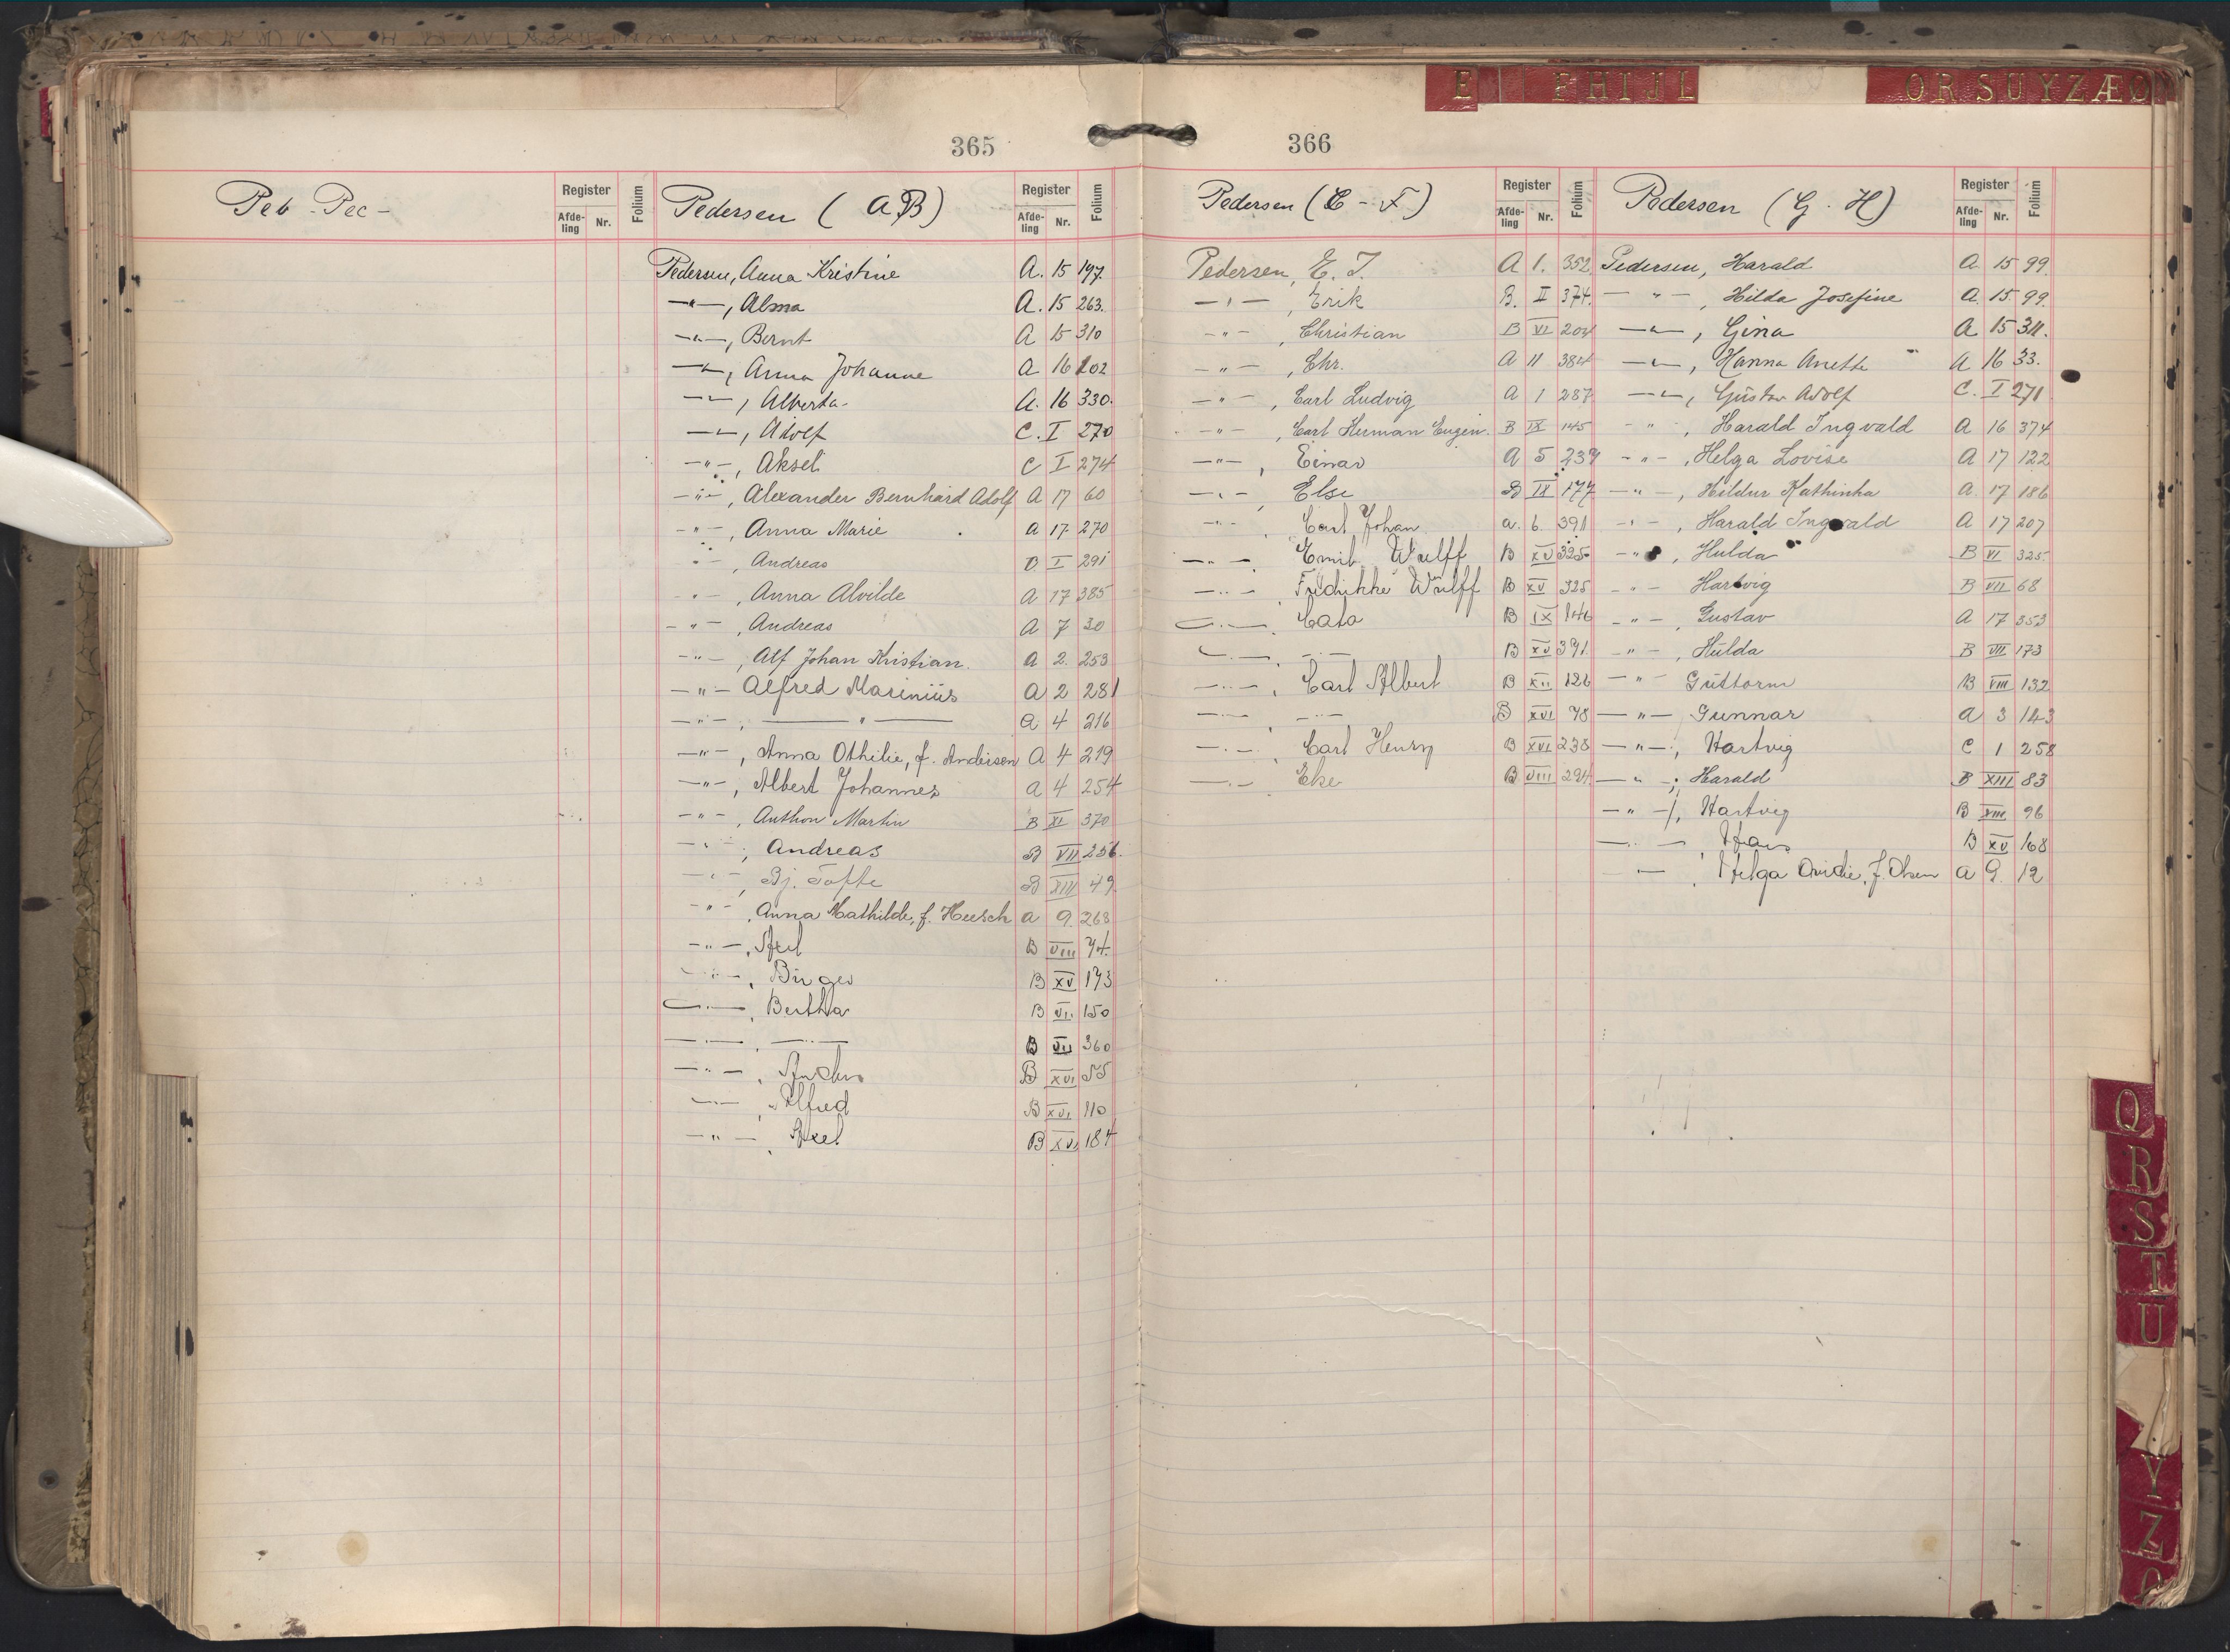 E F H I J L O R S U Y Z Æ
365
Peb - Pec -
Register
Afde-
ling
Nr.
Folium
Pedersen ( A B )
Register
Afde-
ling
Nr.
Folium
Pedersen, Anna Kristine A. 15 197.
—"—, Alma A. 15 263.
—"—, Bernt A 15 310
—"—, Anna Johanne A 16 202
—"—, Alberta A. 16 330.
—"—, Adolf C. I 270
—"—, Aksel C I 274
—"—, Alexander Bernhard Adolf A 17 60
—"—, Anna Marie A 17 270
—"—, Andreas I 291
—"—, Anna Alvilde A 17 385
—"—, Andreas A 7 30
—"—, Alf Johan Kristian. A 2. 253
—"— Alfred Marinius A 2 281
—"—, —"— A 4 216
—"—, Anna Othilie, f. Andersen A 4 219
—"—, Albert Johannes A 4 254
—"—, Anthon Martin B XI 370
—"—, Andreas B VII 256.
—"—, Bj. Tofte B XIII 49
—"—, Anna Mathilde, f. Heesch A 9. 268
—"—, Axel B VIII 74.
—"—, Birger B XV 173
—"—, Bertha B VI. 150
—"—, —"— B VII 360
—"—, Anders B XVI 55
—"—, Alfred B XVI 110
—"—, Axel B XVI 184
366
Pedersen (C - F)
Register
Afde-
ling
Nr.
Folium
Pedersen, E. J. A 1. 352
—"—, Erik B. II 374.
—"—, Christian B VI 204
—"—, Chr. A 11 384
—"—, Carl Ludvig A 1 287
—"—, Carl Herman Eugen. B IX 145
—"—, Einar A 5 239
—"— Else B IX 177
—"—, Carl Johan A. 6. 391
—"—, Emil Wulff B XV 325
—"—, Fredrikke Wulff B XV 325
—"—, Cato B IX 146
—"— —"— B XV 391.
—"—, Carl Albert B XII 126
—"— —"— B XVI 78
—"—, Carl Henry B XVI 238
—"— B VIII 294
Pedersen (G. H)
Register
Afde-
ling
Nr.
Folium
Pedersen, Harald A 15 99.
—"—, Hilda Josefine A. 15. 99.
—"—, Gina A 15 311.
—"—, Hanna Anette A 16 33.
—"—, Gustav Adolf C. I 271
—"—, Harald Ingvald A 16 374
—"—, Helga Lovise A 17 122
—"—, Hildur Kathinka A. 17 186
—"—, Harald Ingvald A 17 207
—"—, Hulda B VI 325.
—"— Hartvig B VII 68
—"—, Gustav A 17 353
—"—, Hulda B VII 173
—"— Guttorm B VIII 132
—"— Gunnar A 3 143
—"—, Hartvig C 1 258
—"—, Harald B XIII 83
—"—, Hartvig B XIII 96
—"— Hans B XV 168
—"—, Helga Ovidie, f. Olsen A 9. 12
Q
R
S
T
U
Y
Z